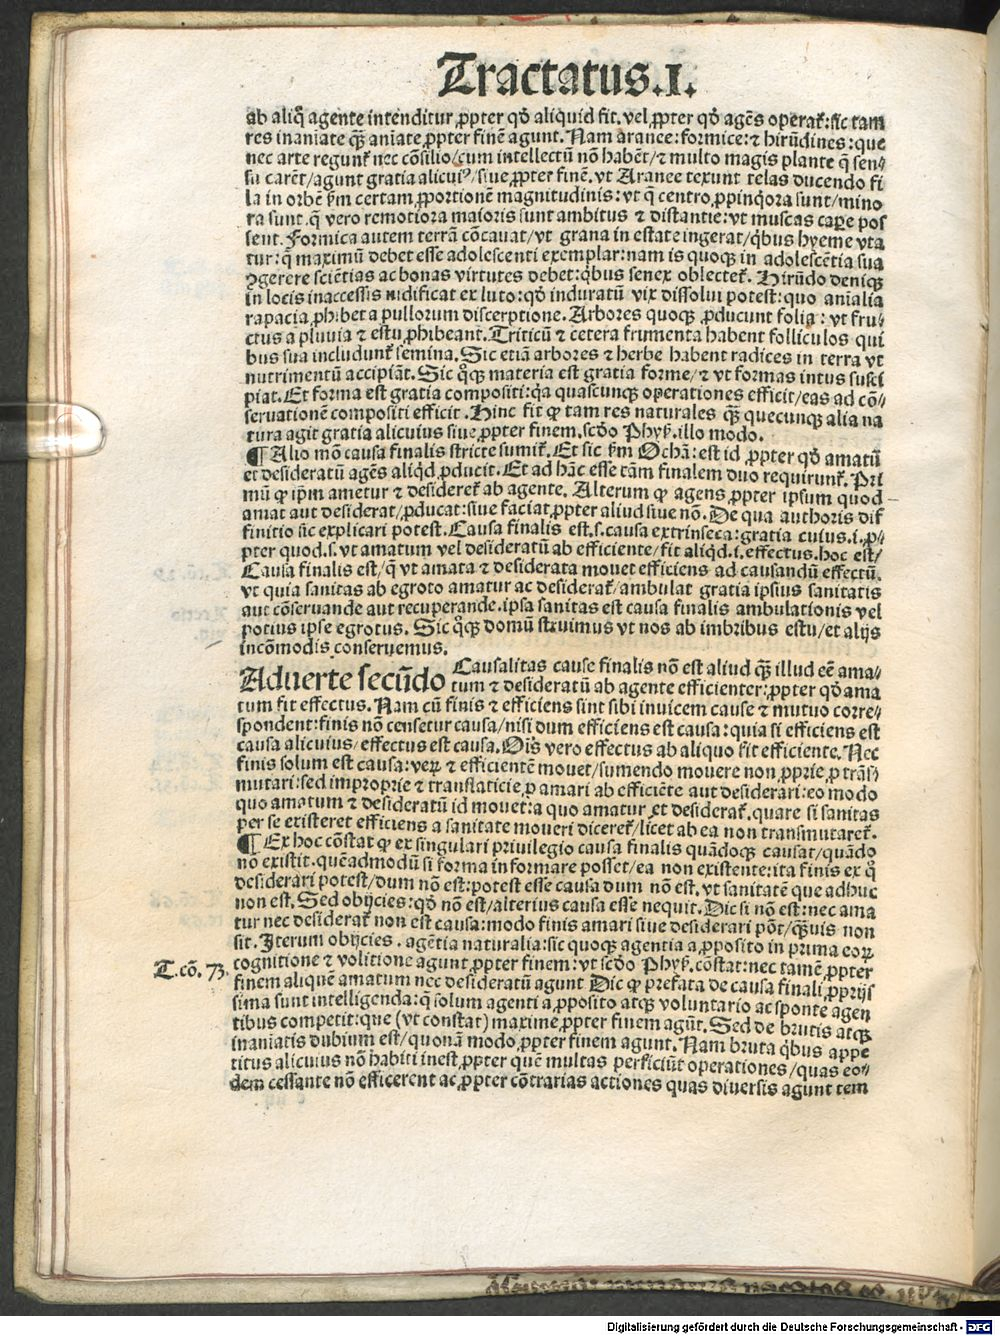 Tractatus.I.
ab aliq̃ agente intenditur ,ppter qđ aliquid fit. vel ,ppter qđ agẽs operat̃: sic tam
res inaniate q̃ꝫ aniate ,ppter finẽ agunt. Nam aranee: formice: ⁊ hirũdines: que
nec arte regunt̃ nec cõsilio/cum intellectũ nõ habẽt/⁊ multo magis plante q̃ sen⸗
su carẽt/agunt gratia alicuiꝰ/siue ,ppter finẽ. vt Aranee texunt telas ducendo fi
la in orbẽ ẜm certam ,pportionẽ magnitudinis: vt q̃ centro ,ppinq̃ora sunt/mino
ra sunt. q̃ vero remotiora maioris sunt ambitus ⁊ distantie: vt muscas capere pos
sent. Formica autem terrã cõcauat/vt grana in estate ingerat/q̃bus hyeme vta
tur: q̃ maximũ debet esse adolescenti exemplar: nam is quoqꝫ in adolescẽtia sua
ꝯgerere sciẽtias ac bonas virtutes debet: q̃bus senex oblectet̃. Hirũdo deniqꝫ
in locis inaccessis nidificat ex luto: qđ induratũ vix dissolui potest: quo anialia
rapacia ,phibet a pullorum discerptione. Arbores quoqꝫ ,pducunt folia: vt fru⸗
ctus a pluuia ⁊ estu ,phibeant. Triticũ ⁊ cetera frumenta habent folliculos qui
bus sua includunt̃ semina. Sic etiã arbores ⁊ herbe habent radices in terra vt
nutrimentũ accipiãt. Sic q̊qꝫ materia est gratia forme/⁊ vt formas intus susci
piat. Et forma est gratia compositi: q̃a quascunqꝫ operationes efficit/eas ad cõ⸗
seruationẽ compositi efficit. Hinc fit ꝙ tam res naturales q̃ꝫ quecunqꝫ alia na
tura agit gratia alicuius siue ,ppter finem. scđo Phyẜ. illo modo.
¶ Alio mõ causa finalis stricte sumit̃. Et sic ẜm Ochã: est id ,ppter qđ amatũ
et desideratũ agẽs aliq̃d ,pducit. Et ad hãc esse tãm finalem duo requirunt̃. Pri
mũ ꝙ ip̃m ametur ⁊ desideret̃ ab agente. Alterum ꝙ agens ,ppter ipsum quod
amat aut desiderat/,pducat: siue faciat ,ppter aliud siue nõ. De qua authoris dif
finitio sic explicari potest. Causa finalis est .s. causa extrinseca: gratia cuius .i. ,p⸗
pter quod .s. vt amatum vel desideratũ ab efficiente/fit aliq̃d .i. effectus. hoc est/
Causa finalis est/q̃ vt amata ⁊ desiderata mouet efficiens ad causandũ effectũ.
vt quia sanitas ab egroto amatur ac desiderat̃/ambulat gratia ipsius sanitatis
aut cõseruande aut recuperande. ipsa sanitas est causa finalis ambulationis vel
potius ipse egrotus. Sic q̊qꝫ domũ struimus vt nos ab imbribus estu/et alijs
incõmodis conseruemus.
Aduerte secũdo Causalitas cause finalis nõ est aliud q̃ꝫ illud eẽ ama⸗
tum ⁊ desideratũ ab agente efficienter: ,ppter qđ ama
tum fit effectus. Nam cũ finis ⁊ efficiens sint sibi inuicem cause ⁊ mutuo corre⸗
spondent: finis nõ censetur causa/nisi dum efficiens est causa: quia si efficiens est
causa alicuius/effectus est causa. Oĩs vero effectus ab aliquo fit efficiente. Nec
finis solum est causa: veꝝ ⁊ efficientẽ mouet/sumendo mouere non ,pprie ,p trãs⸗
mutari: sed improprie ⁊ translaticie ,p amari ab efficiẽte aut desiderari: eo modo
quo amatum ⁊ desideratũ id mouet: a quo amatur et desiderat̃. quare si sanitas
per se existeret efficiens a sanitate moueri diceret̃/licet ab ea non transmutaret̃.
¶ Ex hoc cõstat ꝙ ex singulari priuilegio causa finalis quãdoqꝫ causat/quãdo
nõ existit. quẽadmodũ si forma informare posset/ea non existente: ita finis ex q̊
desiderari potest/dum nõ est: potest esse causa dum nõ est. vt sanitatẽ que adhuc
non est. Sed obijcies: qđ nõ est/alterius causa esse nequit. Dic si nõ est: nec ama
tur nec desiderat̃ non est causa: modo finis amari siue desiderari põt/q̃ꝫuis non
sit. Iterum obijcies. agẽtia naturalia: sic quoqꝫ agentia a ,pposito in prima eoꝝ
cognitione ⁊ volitione agunt ,ppter finem: vt scđo Phyẜ. cõstat: nec tamẽ ,ppter
T. cõ. 73.
finem aliquẽ amatum nec desideratũ agunt Dic ꝙ prefata de causa finali ,pprijs
sima sunt intelligenda: q̃ solum agenti a ,pposito atqꝫ voluntario ac sponte agen
tibus competit: que (vt constat) maxime ,ppter finem agũt. Sed de brutis atqꝫ
inaniatis dubium est/quonã modo ,ppter finem agunt. Nam bruta q̃bus appe
titus alicuius nõ habiti inest ,ppter quẽ multas perficiũt operationes/quas eo⸗
dem cessante nõ efficerent ac ,ppter cõtrarias actiones quas diuersis agunt tem
Digitalisierung gefördert durch die Deutsche Forschungsgemeinschaft - DFG